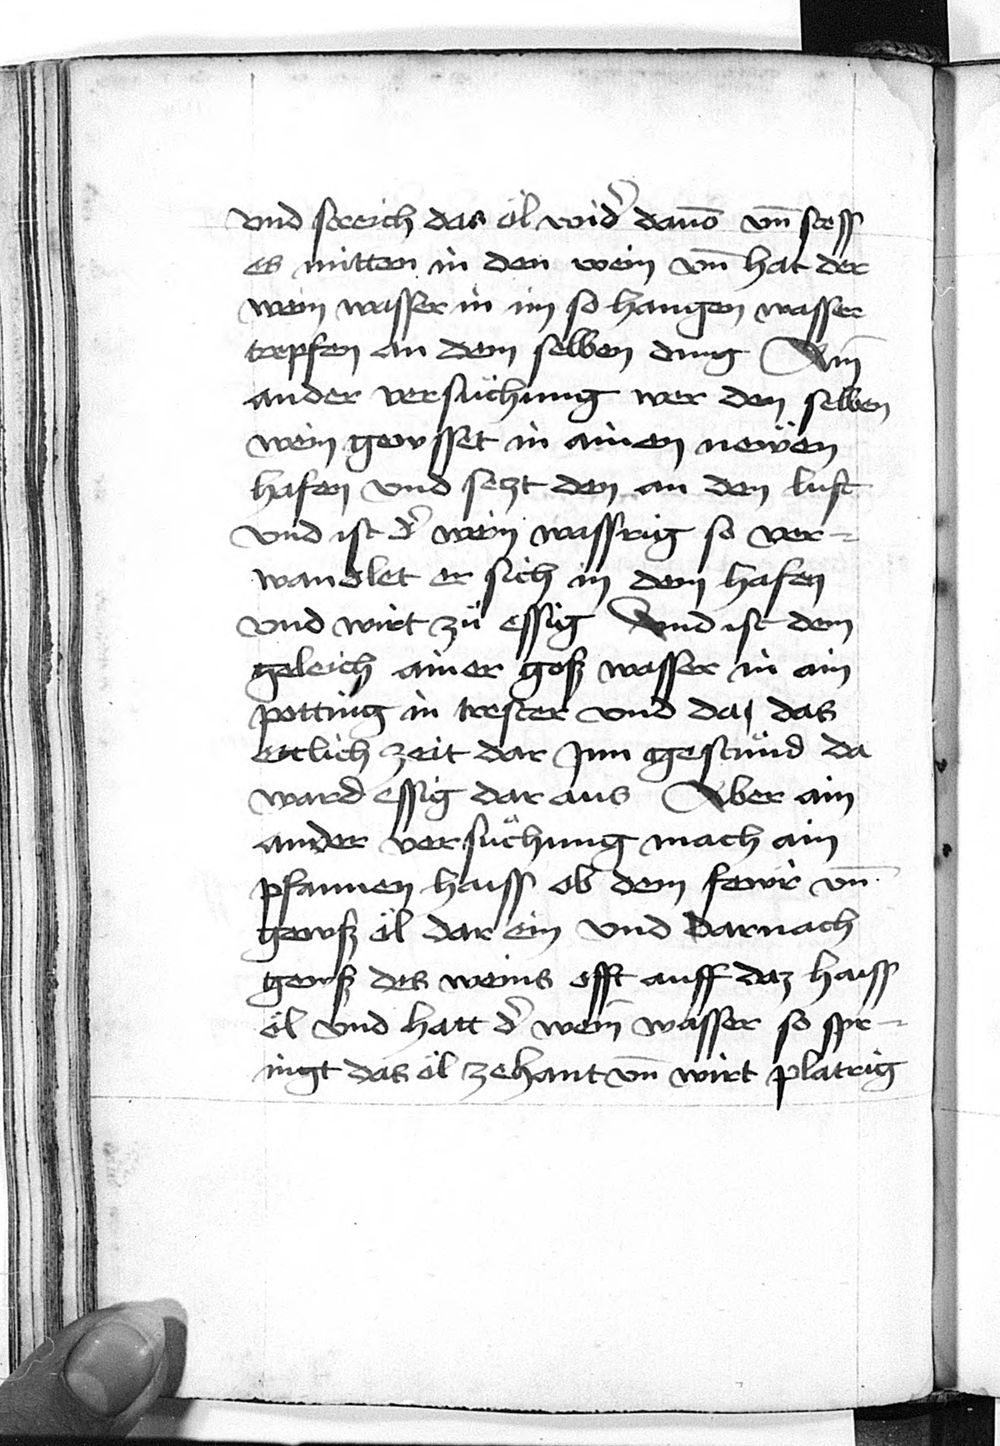 vnd streich das öl wid̾ dauō vn̄ stoss
es mitten in den wein vn̄ hat der
wein wasser in im so hangen wasser
tropfen an dem selben ding Ain
ander versüchung wer den selben
wein geusset in ainen newen
hafen vnd seczt den an den luft
vnd ist d̾ wein wassrig so ver-
wandlet er sich in dem hafen
vnd wirt zů essig Vnd ist dem
geleich ainer goß wasser in ain
potting in trester vnd da das
ettlich zeit dar jnn gestůnd da
ward essig dar aus Aber ain
ander versůchung mach ain
pfannen haiss ob dem fewr vn̄
geuß öl dar ein vnd darnach
geuß des weins offt auff daz haiss
öl vnd hatt d̾ wein wasser so spr-
ingt das öl zehant vn̄ wirt platrig